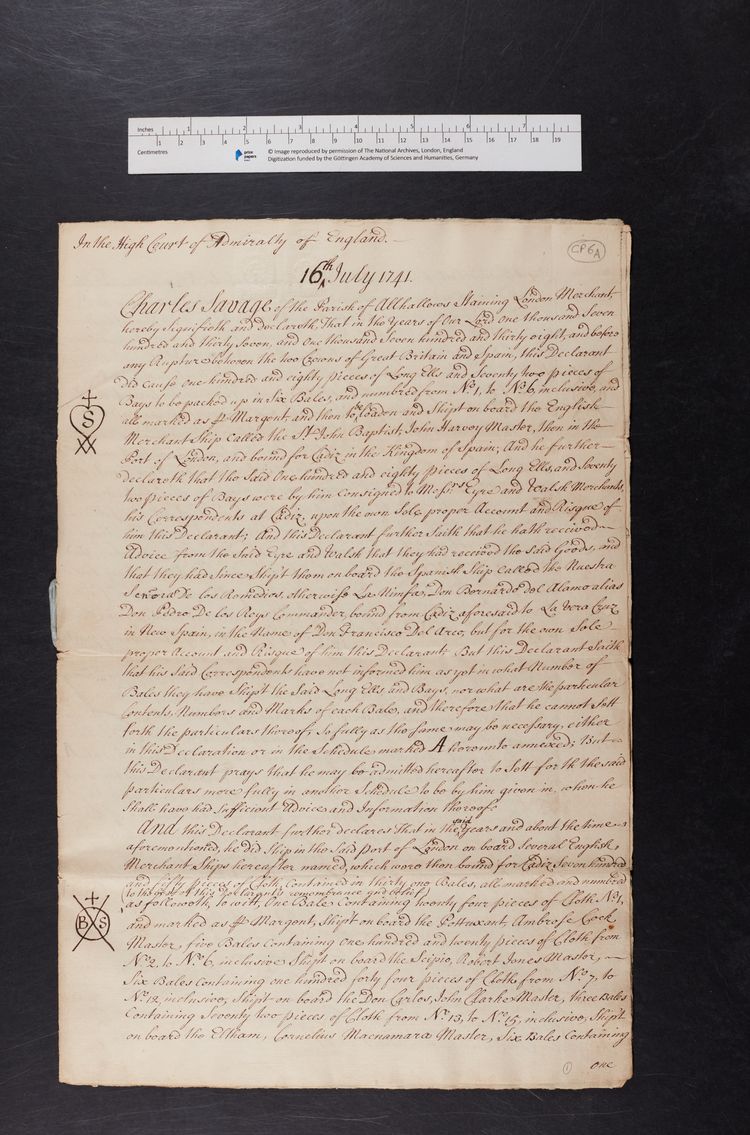 Inches 1 2 3 4 5 6 7
1 2 3 4 5 6 7 8 9 10 11 12 13 14 15 16 17 18 19
Centimetres
prize papers
© Image reproduced by permission of The National Archives, London, England
Digitization funded by the Göttingen Academy of Sciences and Humanities, Germany
In the High Court of Admiralty of England.
CP6A
16th July 1741.
Charles Savage of the Parish of Allhallows Staining London Merchant,
hereby signifieth and declareth, that in the Years of Our Lord one thousand Seven
hundred and thirty Seven, and One thousand Seven hundred and thirty eight, and before
any Rupture between the two Crowns of Great Britain and Spain, this Declarant
did cause one hundred and eighty pieces of Long Ells and Seventy two pieces of
Bays to be packed up in Six Bales, and numbred from No. 1, to No. 6, inclusive, and
all marked as p Margent, and then to be loaden and Shipt on board the English
S
Merchant Ship called the St. John Baptist, John Harvey Master, then in the
Port of London, and bound for Cadiz in the Kingdom of Spain; And he further
declareth that the Said One hundred and eighty pieces of Long Ells, and Seventy
two pieces of Bays were by him Consigned to Messrs Eyre and Walsh Merchants,
his Correspondents at Cadiz, upon the own Sole proper Account and Risque of
him this Declarant; And this Declarant further Saith that he hath received
Advice from the Said Eyre and Walsh that they had received the said Goods, and
that they had Since Shipt them on board the Spanish Ship called the Nuestra
Senora de los Remedios, otherwise La Nimfa, Don Bernardo del Alamo alias
Don Pedro De los Reys Commander, bound from Cadiz aforesaid to La Vera Cruz
in New Spain, in the Name of Don Francisco Del Arco, but for the own Sole
proper Account and Risque of him this Declarant; But this Declarant Saith
that his Said Correspondents have not informed him as yet in what Number of
Bales they have Shipt the Said Long Ells and Bays, nor what are the particular
Contents, Numbers and Marks of each Bale, and therefore that he cannot Sett
forth the particulars thereof, so fully as the same may be necessary, either
in this Declaration or in the Schedule marked A hereunto annexed; But
this Declarant prays that he may be admitted hereafter to Sett forth the said
particulars more fully in another Schedule to be by him given in, when he
Shall have had Sufficient Advice and Information thereof.
And this Declarant further declares that in the said years and about the time
aforementioned, he did Ship in the Said port of London on board Several English
Merchant Ships hereafter named, which were then bound for Cadiz Seven hundred
and fifty pieces of Cloth, Contained in thirty one Bales, all marked and numbred
(to the best of this Declarants remembrance and belief)
as followeth, to wit, One Bale Containing twenty four pieces of Cloth No. 1,
B S
and marked as p Margent, Shipt on board the Pottuxant, Ambrose Cock
Master, five Bales Containing one hundred and twenty pieces of Cloth from
No. 2, to No. 6, inclusive Shipt on board the Scipio, Robert Jones Master,
Six Bales Containing one hundred forty four pieces of Cloth from No. 7, to
No. 12, inclusive, Shipt on board the Don Carlos, John Clarke Master, three Bales
Containing Seventy two pieces of Cloth from No. 13, to No. 15, inclusive, Shipt
on board the Eltham, Cornelius Macnamara Master, Six Bales Containing
1
one